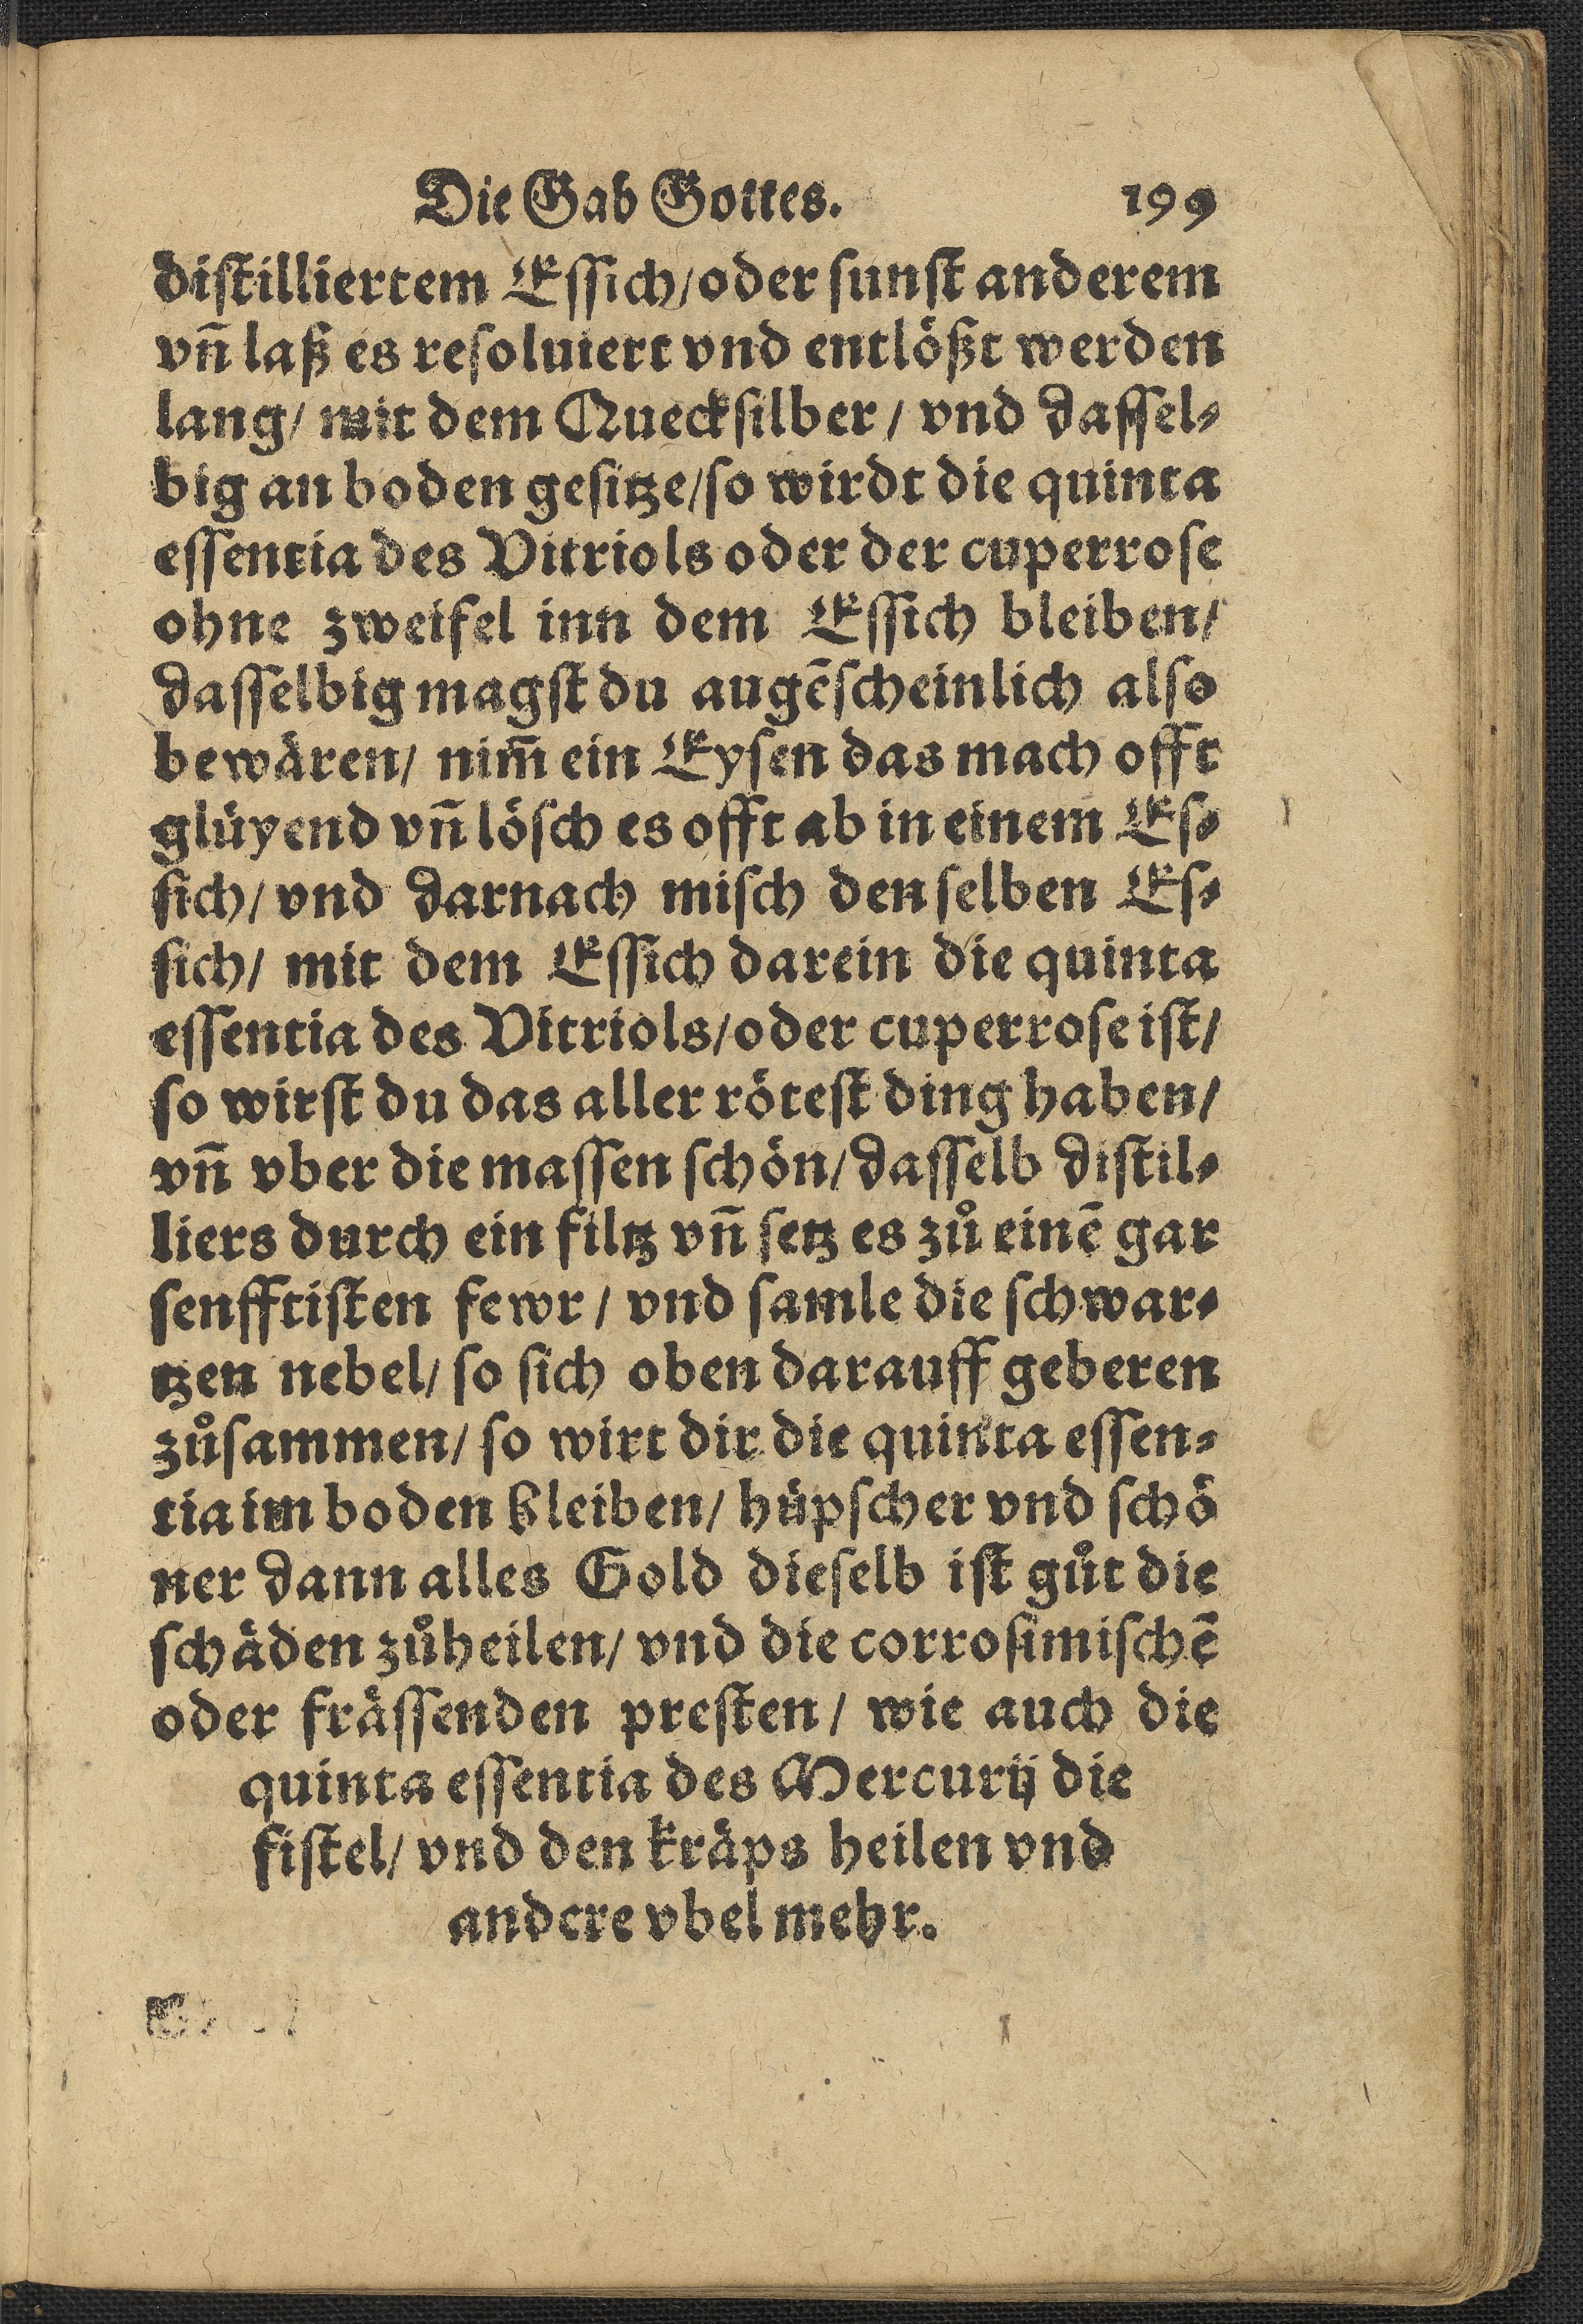 Die Gab Gottes. 199
diſtilliertem Eſſich/oder ſunſt anderem
vñ laß es reſoluiert vnd entlößt werden
lang/ mit dem Queckſilber/ vnd daſſel⸗
big an boden geſitze/ſo wirdt die quinta
eſſentia des Vitriols oder der cuperroſe
ohne zweifel inn dem Eſſich bleiben/
daſſelbig magſt du augēſcheinlich alſo
bewären/ nim̄ ein Eyſen das mach offt
glüyend vñ löſch es offt ab in einem Eſ⸗
ſich/ vnd darnach miſch den ſelben Eſ⸗
ſich/ mit dem Eſſich darein die quinta
eſſentia des Vitriols/oder cuperroſe iſt/
ſo wirſt du das aller röteſt ding haben/
vñ vber die maſſen ſchön/ daſſelb diſtil⸗
liers durch ein filtz vñ ſetz es zů einē gar
ſenfftiſten fewr/ vnd ſamle die ſchwar⸗
tzen nebel/ ſo ſich oben darauff geberen
zůſammen/ ſo wirt dir die quinta eſſen⸗
tia im boden kleiben/ hüpſcher vnd ſchö
ner dann alles Gold dieſelb iſt gůt die
ſchäden zůheilen/ vnd die corroſimiſchē
oder fräſſenden preſten/ wie auch die
quinta eſſentia des Mercurij die
fiſtel/ vnd den kräps heilen vnd
andere vbel mehr.